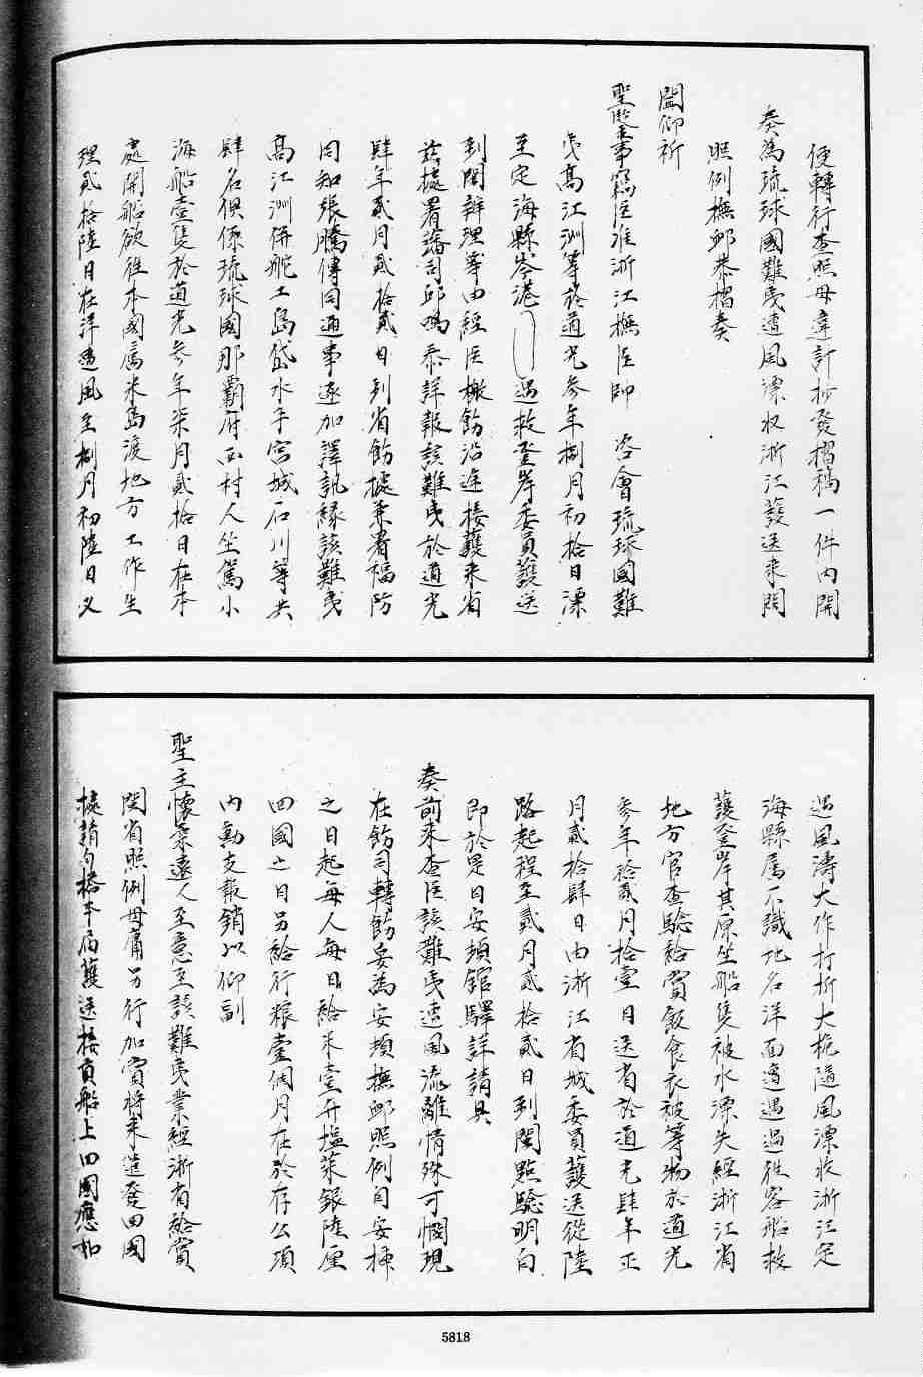 便轉行查照毋違計抄發摺稿一件內開
奏為琉球國難夷遭風漂收浙江護送來閩
照例撫卹恭摺奏
聞仰祈
聖鑒事竊臣准浙江撫臣帥 咨會琉球國難
夷高江洲等於道光參年捌月初拾日漂
至定海縣岑港 遇救登岸委員護送
到閩辦理等由經臣檄飭沿途接護來省
茲據署藩司邱鳴泰詳報該難夷於道光
肆年貳月貳拾貳日到省飭據兼署福防
同知張騰傳同通事逐加譯訊緣該難夷
高江洲併舵工島袋水手宮城石川等共
肆名俱係琉球國那霸府西村人坐駕小
海船壹隻於道光參年柒月貳拾日在本
處開船欲往本國屬米島渡地方工作生
理貳拾陸日在洋遭風至捌月初陸日又
遇風濤大作打折大桅隨風漂收浙江定
海縣屬不識地名洋面適遇過往客船救
護登岸其原坐船隻被水漂失經浙江省
地方官查驗給賞飯食衣被等物於道光
參年拾貳月拾壹日送省於道光肆年正
月貳拾肆日由浙江省城委員護送從陸
路起程至貳月貳拾貳日到閩點驗明白
即於是日安頓館驛詳請具
奏前來查臣該難夷遭風流離情殊可憫現
在飭司轉飭妥為安頓撫卹照例自安插
之日起每人每日給米壹升塩菜銀陸厘
回國之日另給行粮壹個月在於存公項
內動支報銷以仰副
聖主懷柔遠人至意至該難夷業經浙省給賞
閩省照例毋庸另行加賞將來遣發回國
據請勻搭本屆護送接貢船上回國應如
5818